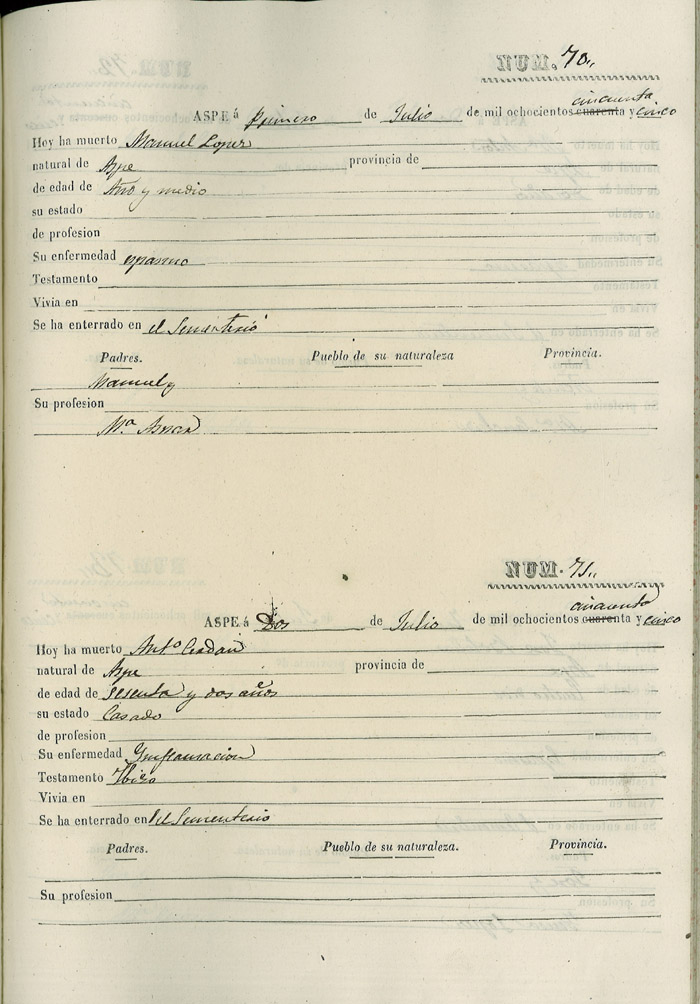 NUM. 70.,
cincuenta
ASPE á Primero de Julio de mil ochocientos cuarenta y cinco
Hoy ha muerto Manuel Lopez
natural de Aspe provincia de
de edad de Año y medio
su estado
de profesion
Su enfermedad espasmo
Testamento
Vivia en
Se ha enterrado en el Sementerio
Padres. Pueblo de su naturaleza Provincia.
Manuel y
Su profesion
Mª
NUM. 71.,
cincuenta
ASPE á Dos de Julio de mil ochocientos cuarenta y cinco
Hoy ha muerto Antº Cerdan
natural de Aspe provincia de
de edad de Sesenta y dos años
su estado Casado
de profesion
Su enfermedad Ynflamacion
Testamento Hizo
Vivia en
Se ha enterrado en el Sementerio
Padres. Pueblo de su naturaleza. Provincia.
Su profesion